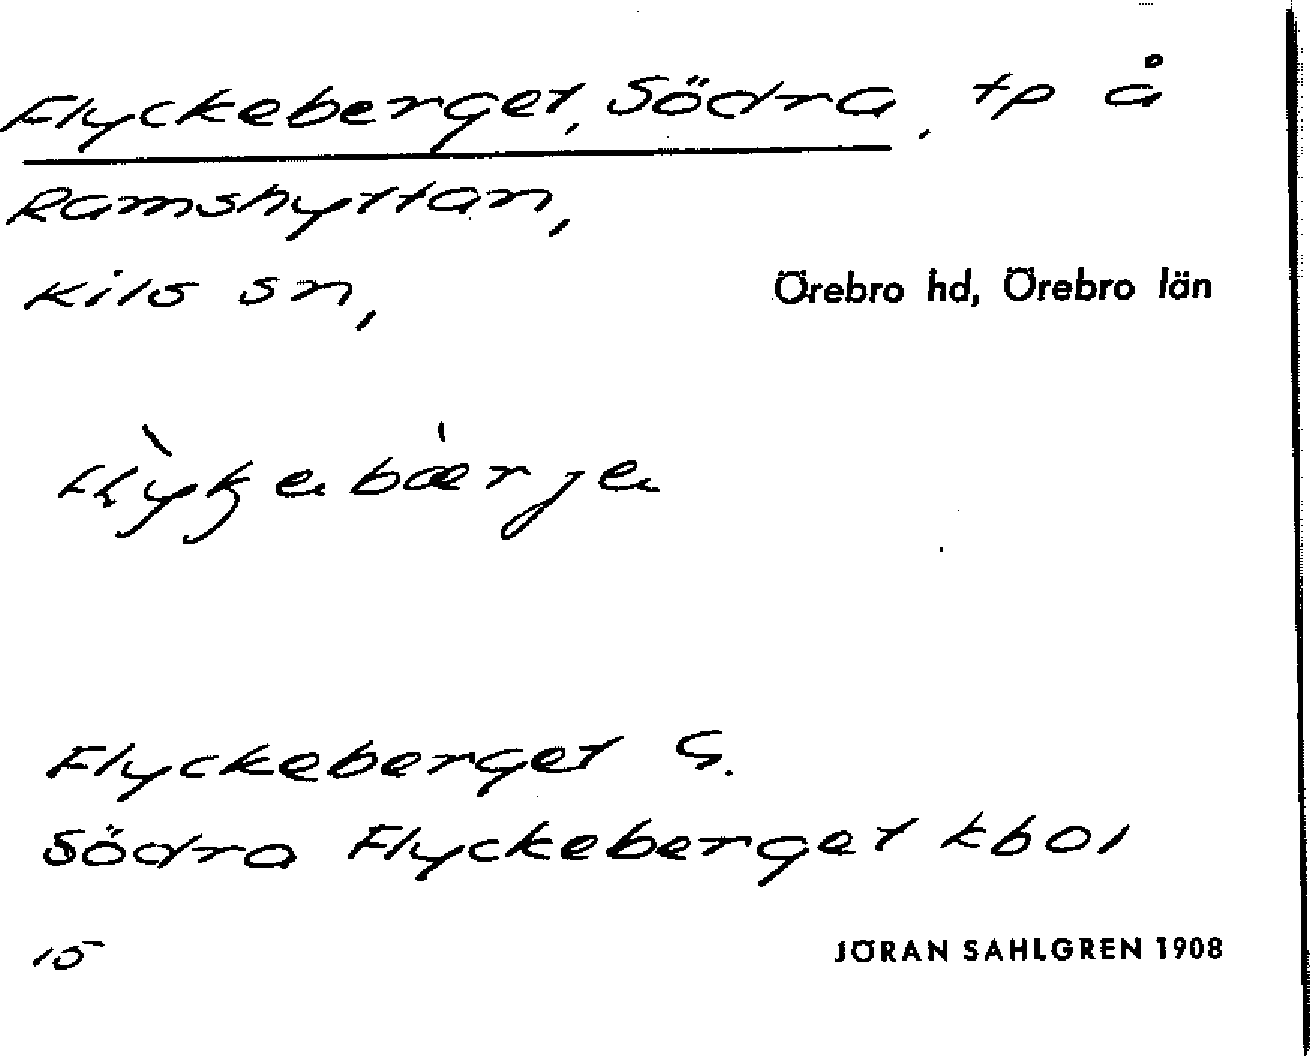 Flyckeberget, Södra, tp å
Ramshyttan,
Kils sn,
Örebro hd, Örebro län
Flyckeberget S.
Södra Flyckeberget kb01
15
JÖRAN SAHLGREN 1908